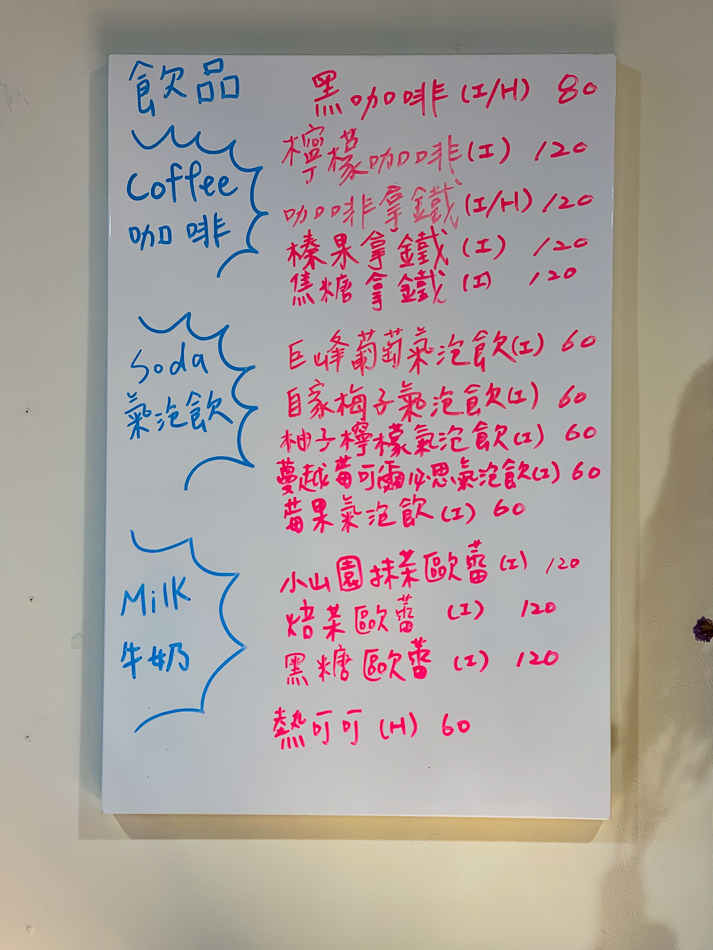 飲品
Coffee
咖啡
黑咖啡(I/H) 80
檸檬咖啡(I) 120
咖啡拿鐵(I/H) 120
榛果拿鐵(I) 120
焦糖拿鐵(I) 120
Soda
氣泡飲
巨峰葡萄氣泡飲(I) 60
自家梅子氣泡飲(I) 60
柚子檸檬氣泡飲(I) 60
蔓越莓可爾必思氣泡飲(I) 60
莓果氣泡飲(I) 60
Milk
牛奶
小山園抹茶歐蕾(I) 120
焙茶歐蕾(I) 120
黑糖歐蕾(I) 120
熱可可(H) 60